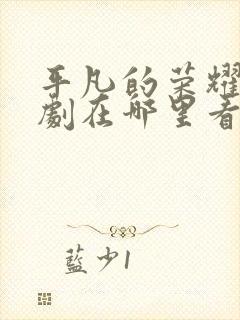 平凡的荣耀
劇在哪里看
藍少1